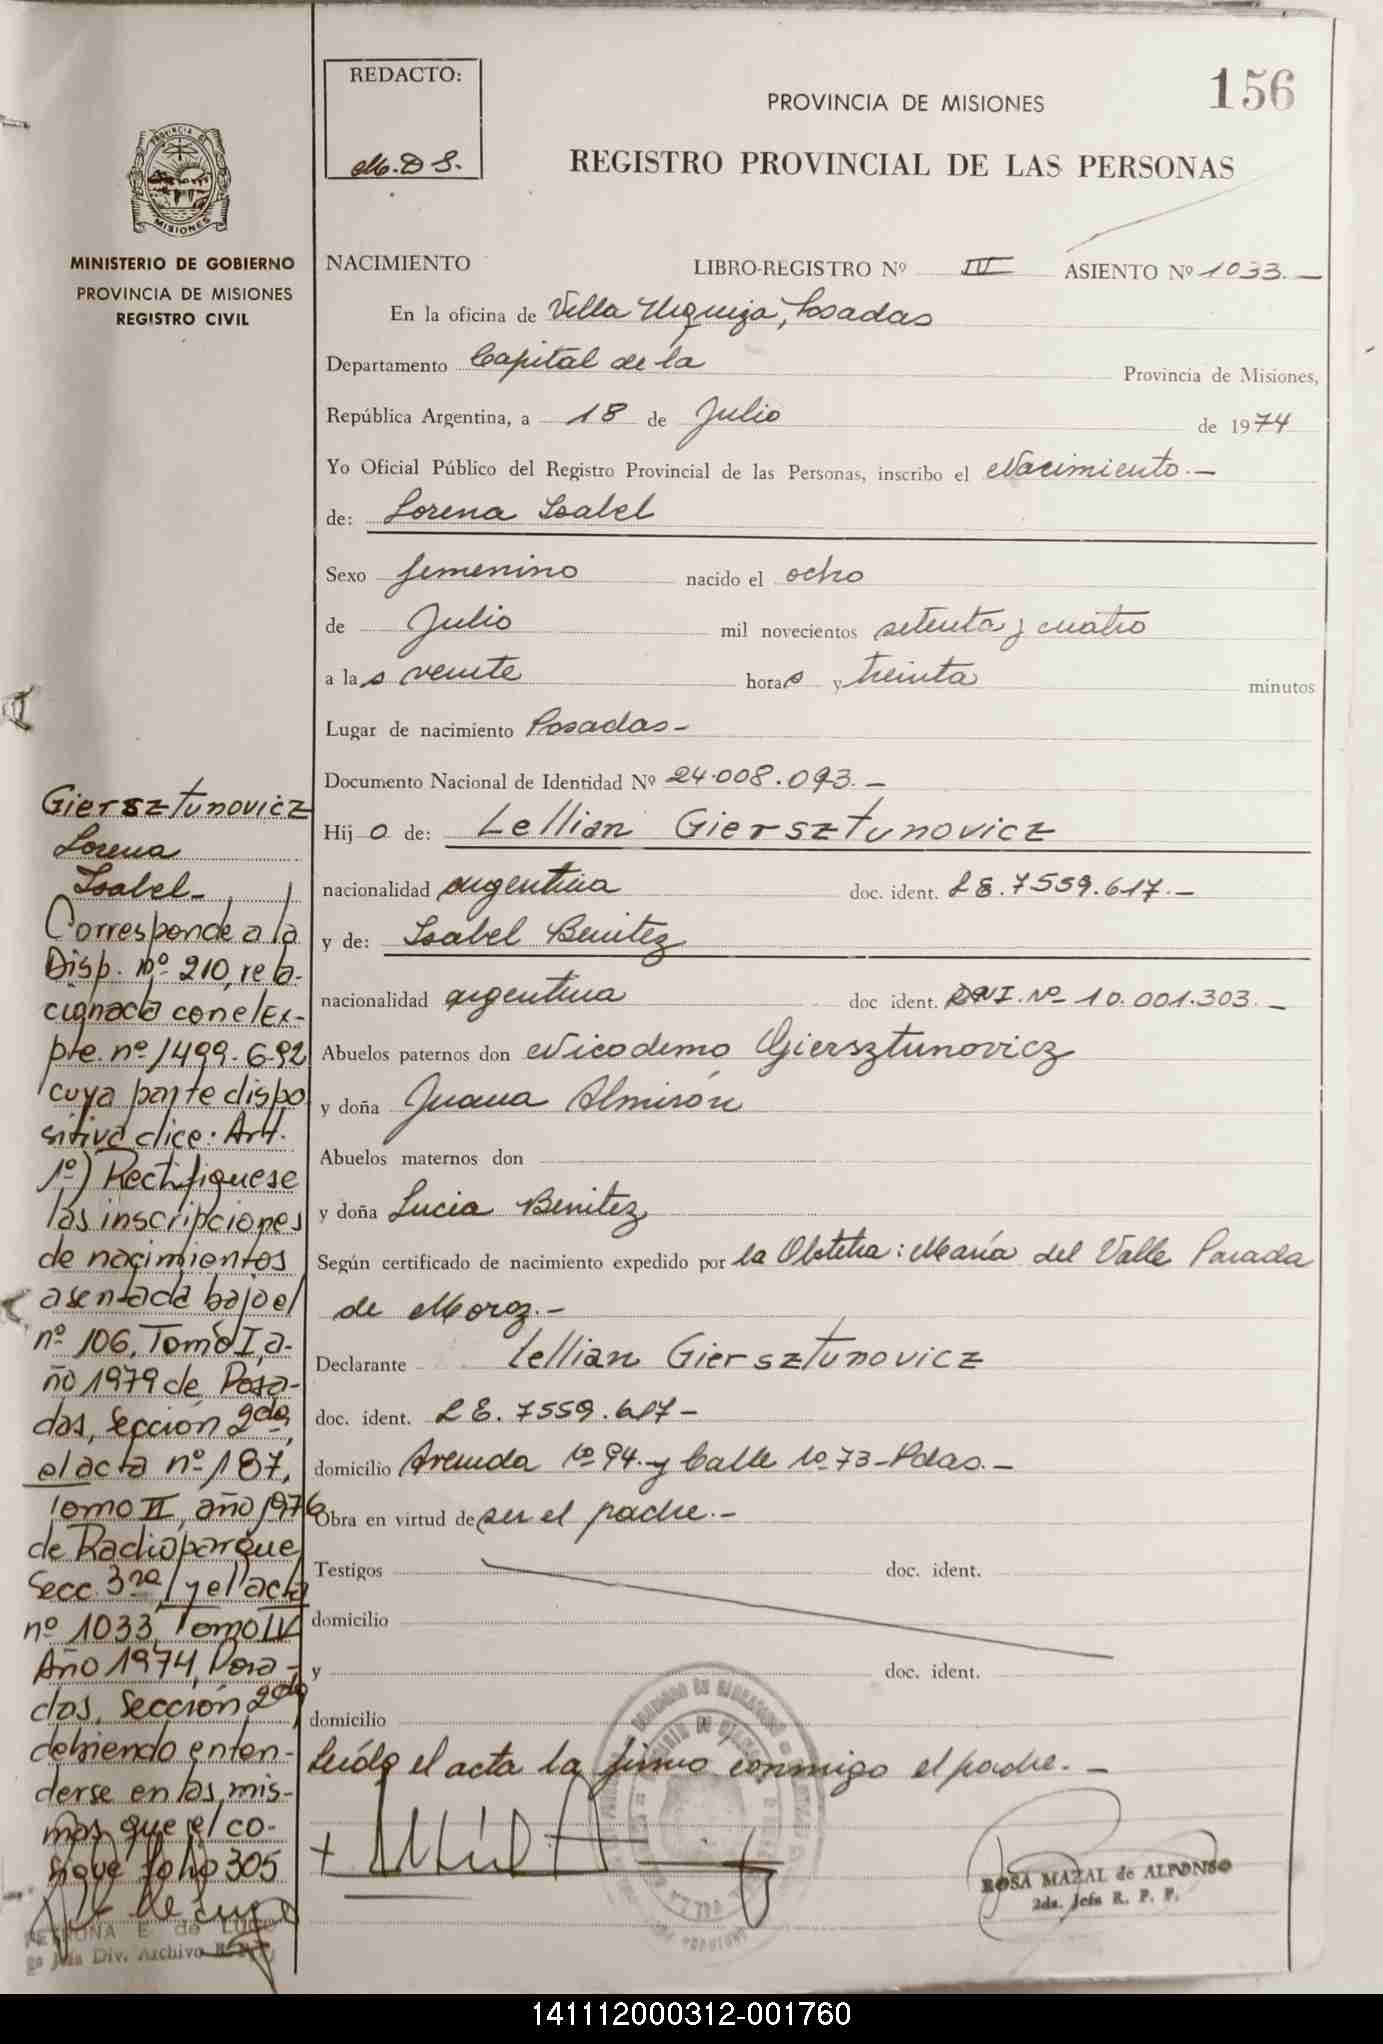 REDACTO:
M. D S.
PROVINCIA DE MISIONES
156
REGISTRO PROVINCIAL DE LAS PERSONAS
PROVINCIA DE
MISIONES
MINISTERIO DE GOBIERNO
PROVINCIA DE MISIONES
REGISTRO CIVIL
NACIMIENTO LIBRO-REGISTRO Nº IV ASIENTO Nº 1033.—
En la oficina de Villa Urquiza, Posadas
Departamento Capital de la Provincia de Misiones,
República Argentina, a 18 de Julio de 1974
Yo Oficial Público del Registro Provincial de las Personas, inscribo el Nacimiento.—
de: Lorena Isabel
Sexo femenino nacido el ocho
de Julio mil novecientos setenta y cuatro
a las veinte horas y treinta minutos
Lugar de nacimiento Posadas-
Documento Nacional de Identidad Nº 24.008.093.—
Hijo de: Lellian Giersztunovicz
nacionalidad argentina doc. ident. L E. 7559.617.-
y de: Isabel Benitez
nacionalidad argentina doc ident. DNI. Nº 10.001.303.-
Abuelos paternos don Nicodemo Giersztunovicz
y doña Juana Almirón
Abuelos maternos don
y doña Lucia Benitez
Según certificado de nacimiento expedido por la Obstetra: María del Valle Parada
de Moroz.-
Declarante Lellian Giersztunovicz
doc. ident. L E. 7559.617-
domicilio Avenida Nº 94 y Calle Nº 73-Pdas.-
Obra en virtud de ser el padre.-
Testigos doc. ident.
domicilio
y doc. ident.
domicilio
Leída el acta la firma conmigo el padre.-
ROSA MAZAL de ALFONSO
2da. Jefa R. P. P.
Giersztunovicz
Lorena
Isabel-
Corresponde a la
Disp. nº 210, rela-
cionada con el Ex-
pte. nº 1499-6-92
cuya parte dispo
sitiva dice: Art.
1º) Rectifiquese
las inscripciones
de nacimientos
asentada bajo el
nº 106, Tomo I, a-
ño 1979 de Posa-
das, Sección 2da,
el acta nº 187,
Tomo II, año 1976
de Radioparque
Secc. 3ra, y el acta
nº 1033, Tomo IV
Año 1974, Posa-
das, Sección 2da,
debiendo enten-
derse en las mis-
mas que el co-
Sigue folio 305
E. de
Jefa Div. Archivo
141112000312-001760